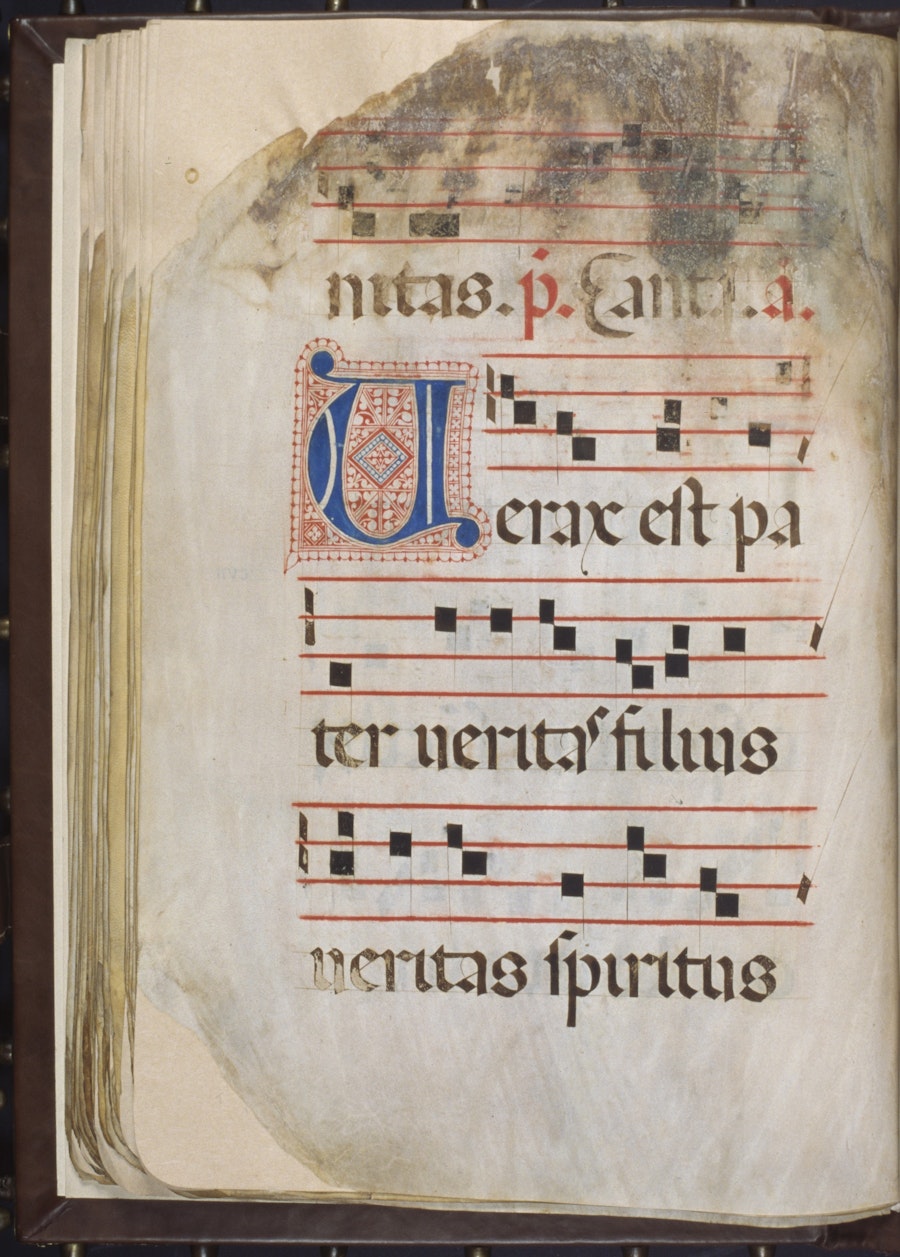 nitas. p̃. Cant̃. a̾.
Uerax est pa
ter ueritas filius
ueritas spiritus